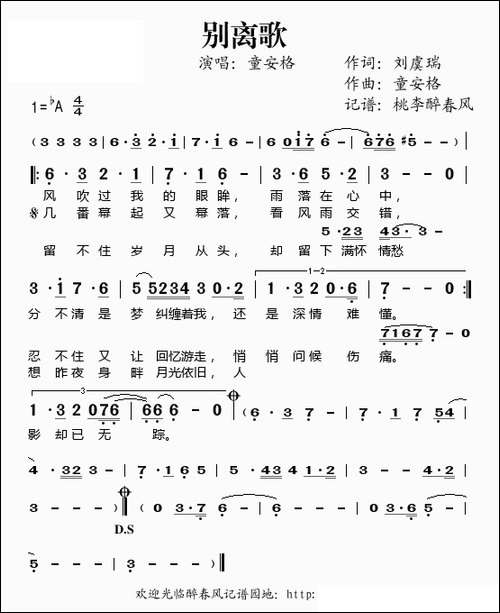 别离歌
演唱：童安格 作词：刘虞瑞
作曲：童安格
1=♭A 4/4 记谱：桃李醉春风
( 3 3 3 3 | 6·3 2·i | 7·i 6 - | 6 0i76 - | 676 #5 - - )
‖: 6·3 2·1 | 7·1 6 - | 3·6 5·2 | 3 - - 0 |
风吹过我的眼眸，雨落在心中，
几番幕起又幕落，看风雨交错，
5·23 43·3 -
留不住岁月从头，却留下满怀情愁
3·i 7·6 | 5 5234 3 0·2 | 1·3 2 0·6 | 7 - - 0 :‖
1-2
分不清是梦纠缠着我，还是深情难懂。
7167 7 - 0
忍不住又让回忆游走，悄悄问候伤痛。
想昨夜身畔月光依旧，人
3
1·3 2 076 | 66 6 - 0 ( 6·3 7 - | 7·1 7 54 |
影却已无踪。
4·32 3 - | 7·1 6·5 | 5·43 4 1·2 | 3 - - 4·2 |
3 - - - ) ‖ ( 0 3·7 6 - | 6 - - - | 0 3·6 5 - |
D.S
5 - - - | 3 - - - ) ‖
欢迎光临醉春风记谱园地：http: